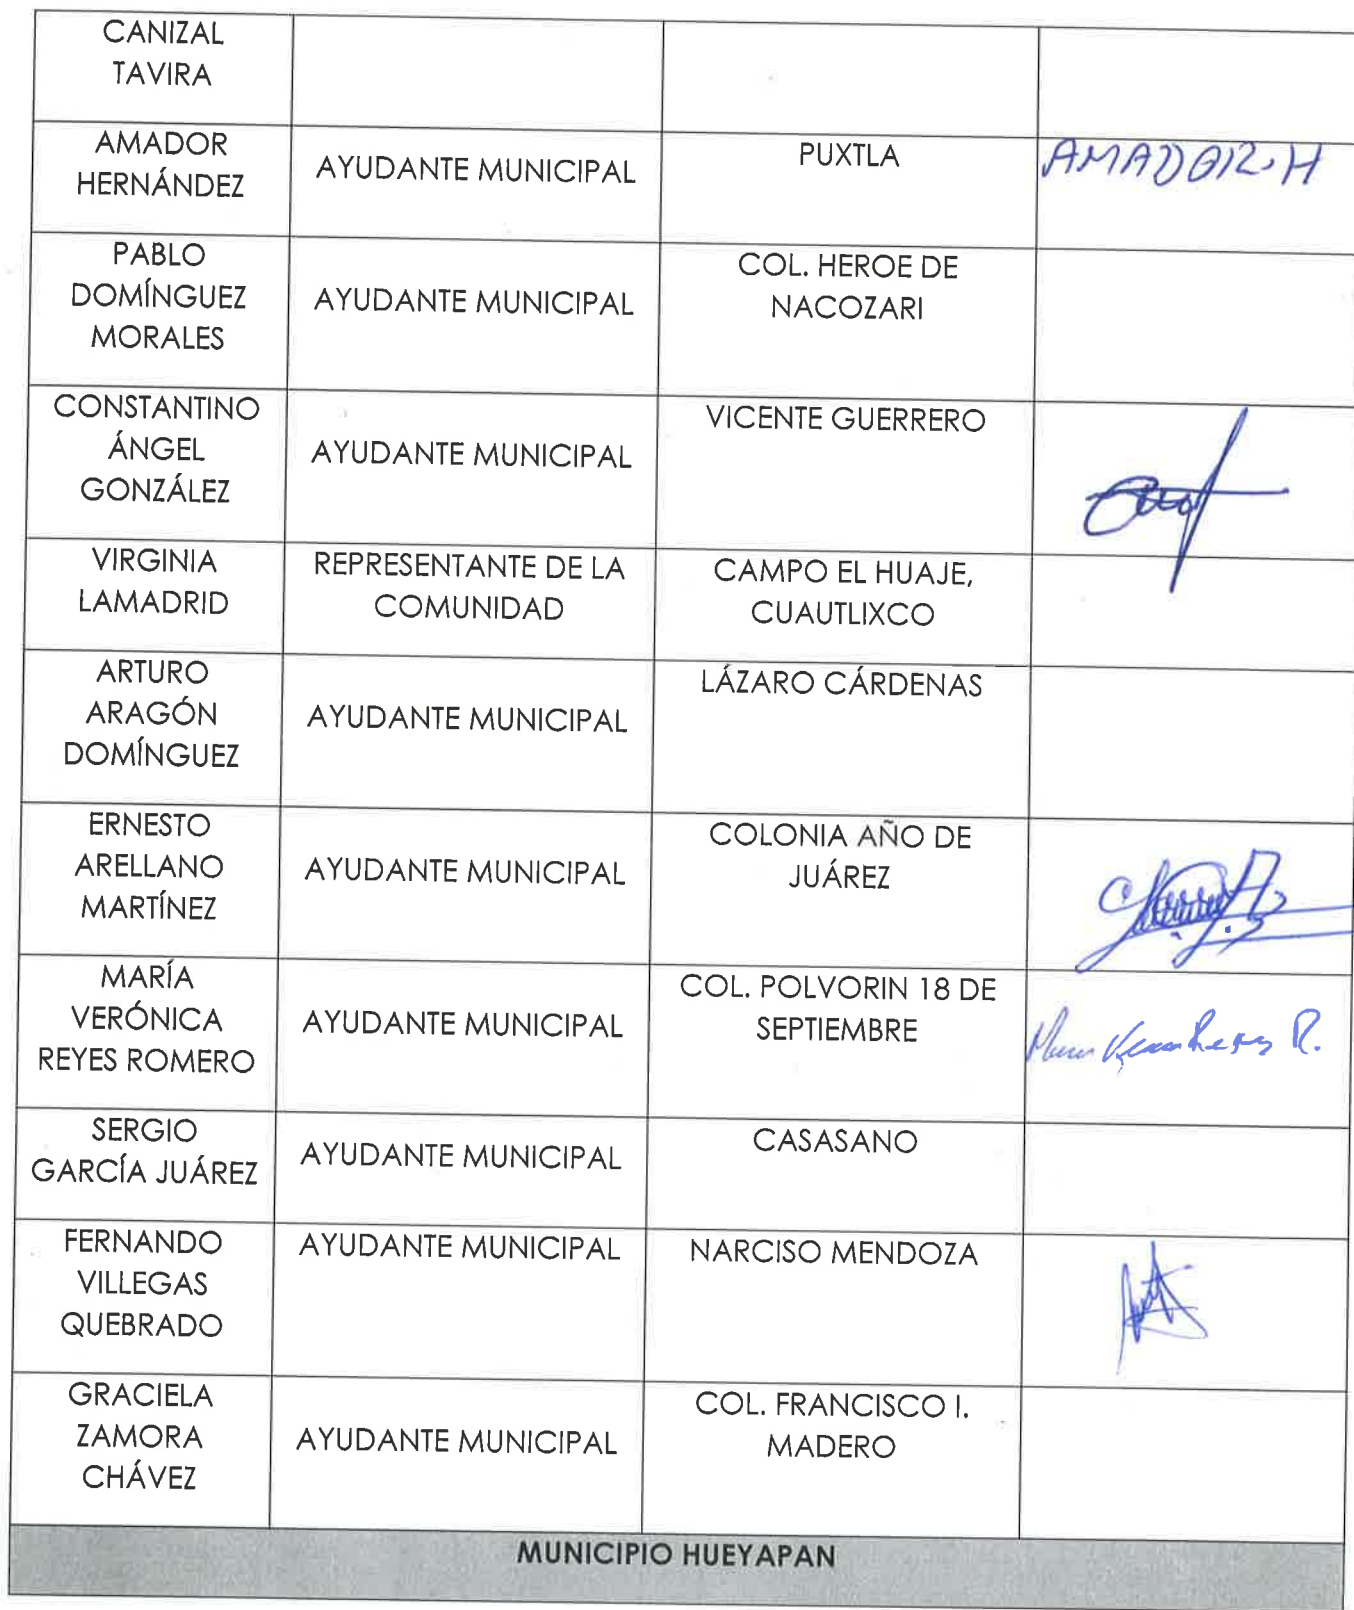 CANIZAL
TAVIRA
AMADOR
HERNÁNDEZ
AYUDANTE MUNICIPAL
PUXTLA
AMADOR.H
PABLO
DOMÍNGUEZ
MORALES
AYUDANTE MUNICIPAL
COL. HEROE DE
NACOZARI
CONSTANTINO
ÁNGEL
GONZÁLEZ
AYUDANTE MUNICIPAL
VICENTE GUERRERO
VIRGINIA
LAMADRID
REPRESENTANTE DE LA
COMUNIDAD
CAMPO EL HUAJE,
CUAUTLIXCO
ARTURO
ARAGÓN
DOMÍNGUEZ
AYUDANTE MUNICIPAL
LÁZARO CÁRDENAS
ERNESTO
ARELLANO
MARTÍNEZ
AYUDANTE MUNICIPAL
COLONIA AÑO DE
JUÁREZ
MARÍA
VERÓNICA
REYES ROMERO
AYUDANTE MUNICIPAL
COL. POLVORIN 18 DE
SEPTIEMBRE
R.
SERGIO
GARCÍA JUÁREZ
AYUDANTE MUNICIPAL
CASASANO
FERNANDO
VILLEGAS
QUEBRADO
AYUDANTE MUNICIPAL
NARCISO MENDOZA
GRACIELA
ZAMORA
CHÁVEZ
AYUDANTE MUNICIPAL
COL. FRANCISCO I.
MADERO
MUNICIPIO HUEYAPAN